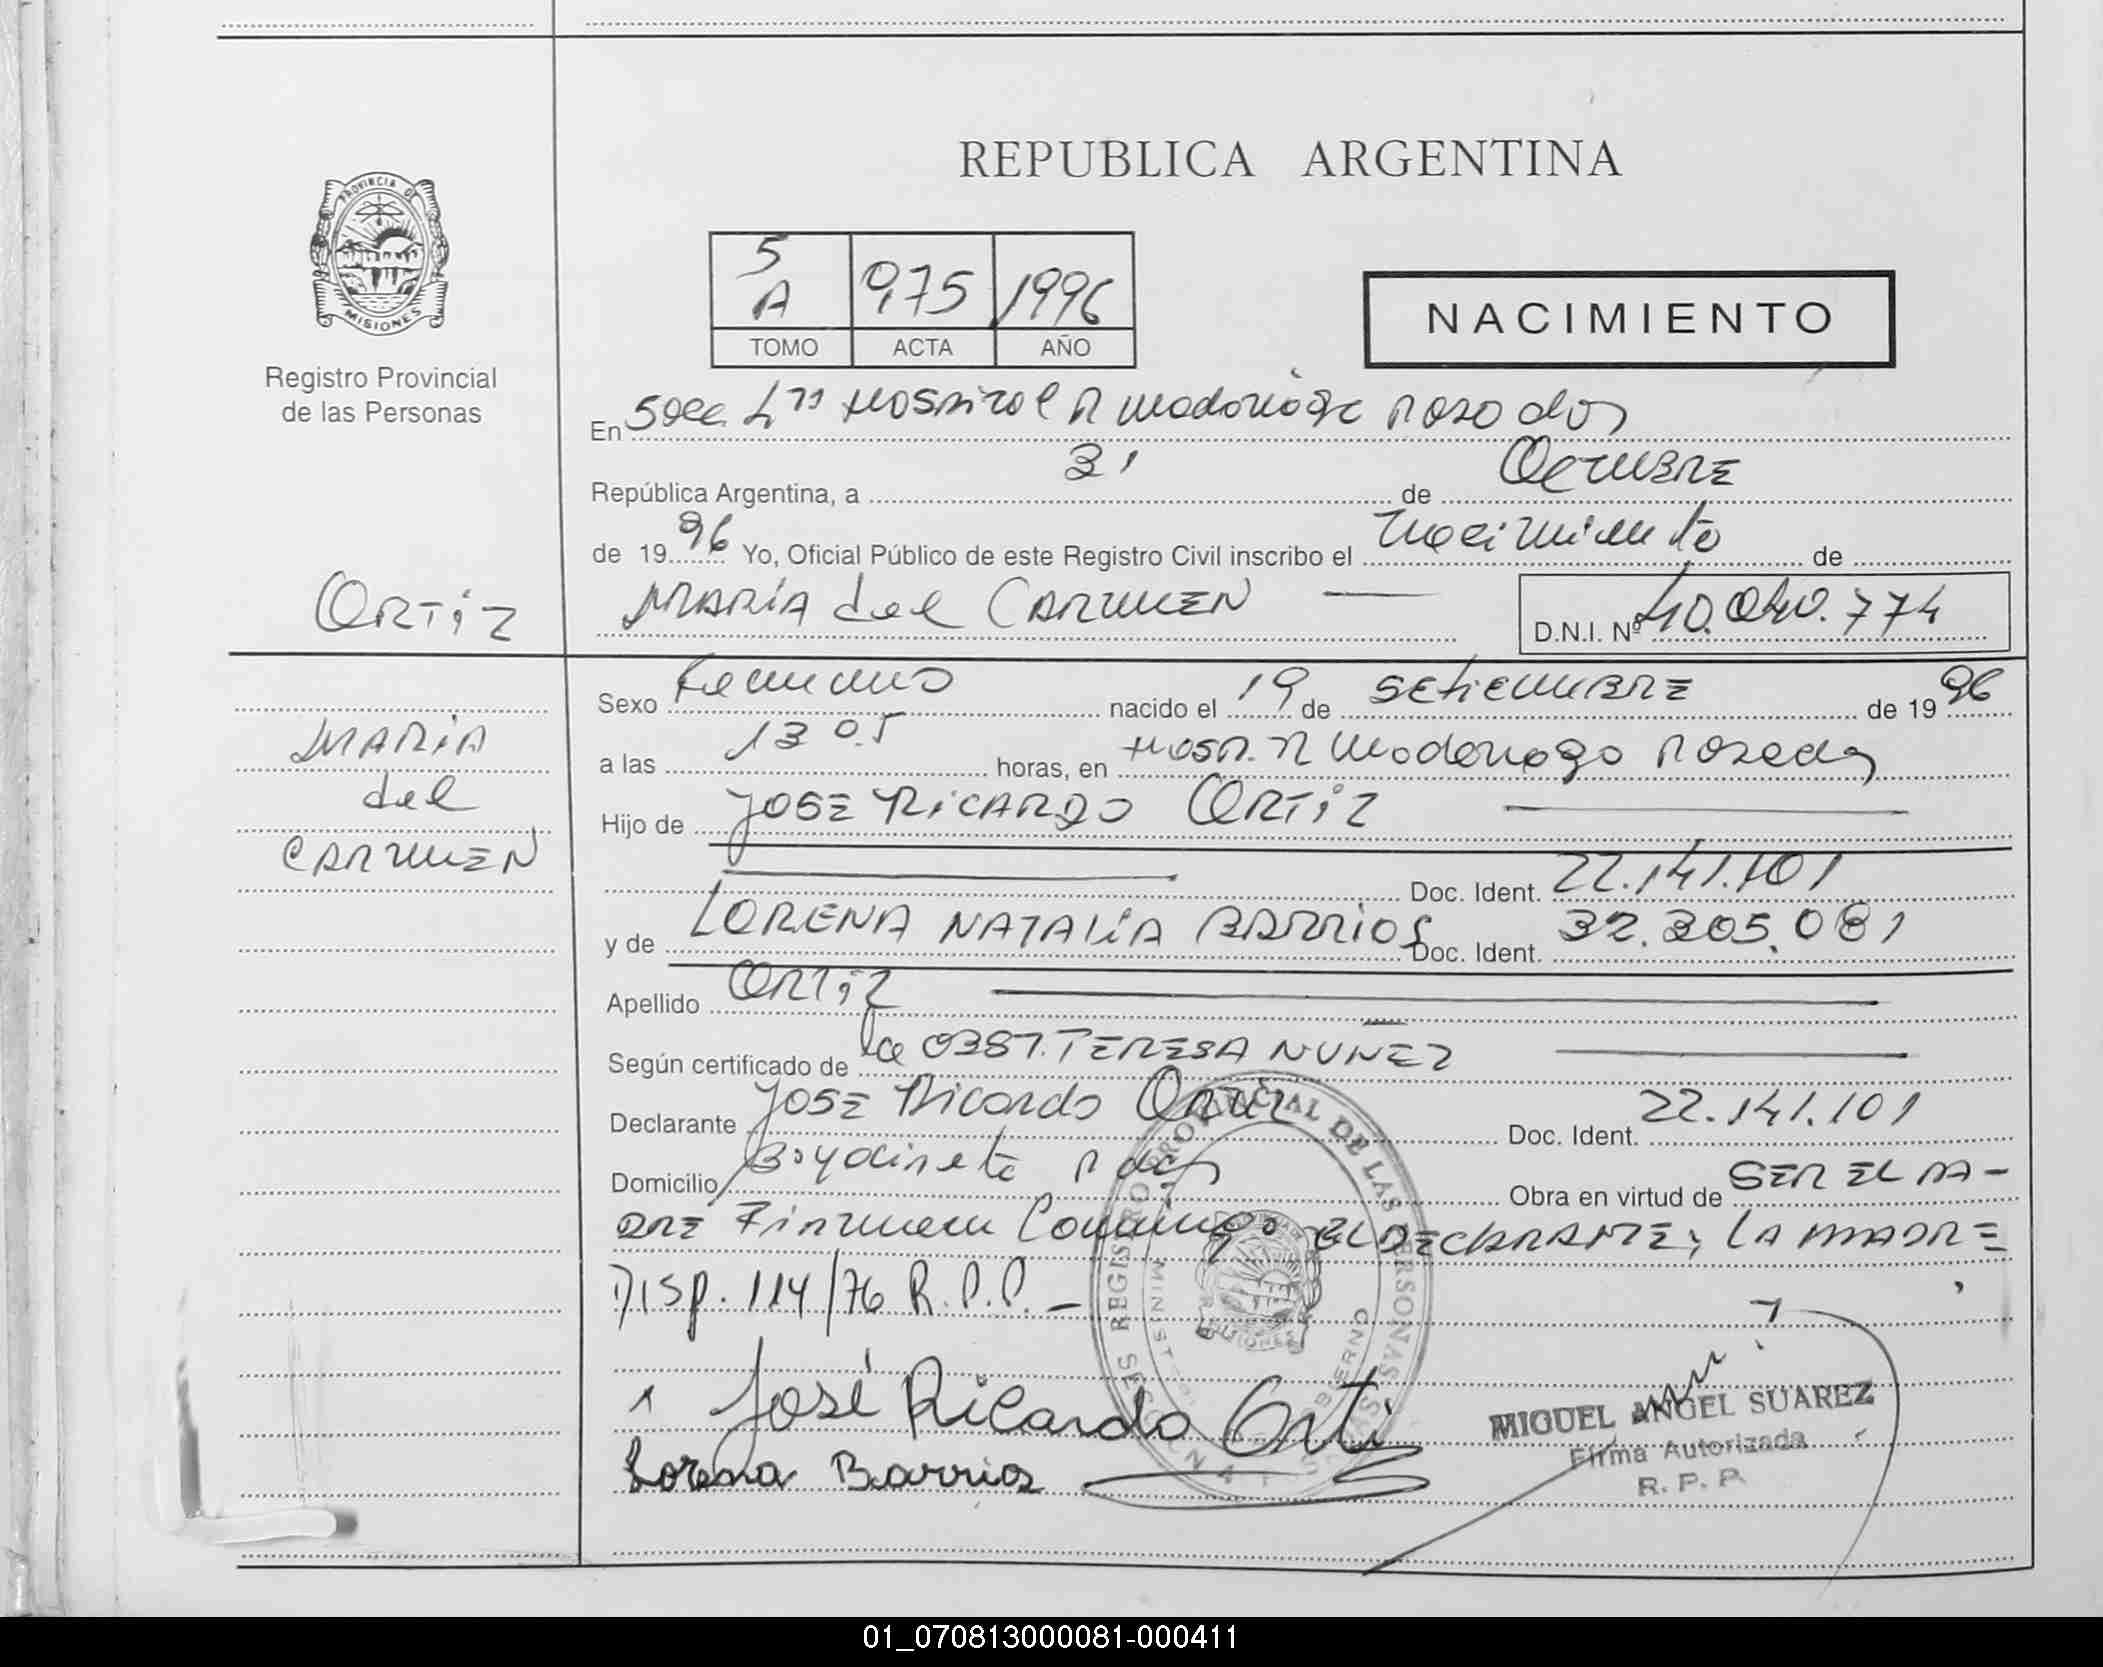 REPUBLICA ARGENTINA
PROVINCIA DE
MISIONES
Registro Provincial
de las Personas
5
A 975 1996
TOMO ACTA AÑO
NACIMIENTO
En Secc. Hospital R Madariaga Posadas
República Argentina, a 31 de OCTUBRE
de 1996 Yo, Oficial Público de este Registro Civil inscribo el nacimiento de
ORTiZ
MARIA del CARMEN D.N.I. Nº 40.040.774
MARIA
del
CARMEN
Sexo Femenino nacido el 19 de SEtiEMBRE de 1996
a las 13 05 horas, en HOSP. R Madariaga Posadas
Hijo de JOSE RICARDO ORTIZ
Doc. Ident. 22.141.101
y de LORENA NATALIA BARRIOS Doc. Ident. 32.305.081
Apellido ORTIZ
Según certificado de la OBST. TERESA NUÑEZ
Declarante JOSE Ricardo Ortiz Doc. Ident. 22.141.101
Domicilio Pdas Obra en virtud de SER EL PA-
DRE Firman Conmigo EL DECLARANTE, LA MADRE
DISP. 114/76 R.P.P. —
José Ricardo Orti
Lorena Barrios
REGISTRO PROVINCIAL DE LAS PERSONAS
MISIONES
MIGUEL ANGEL SUAREZ
Firma Autorizada
R. P. P.
01_070813000081-000411